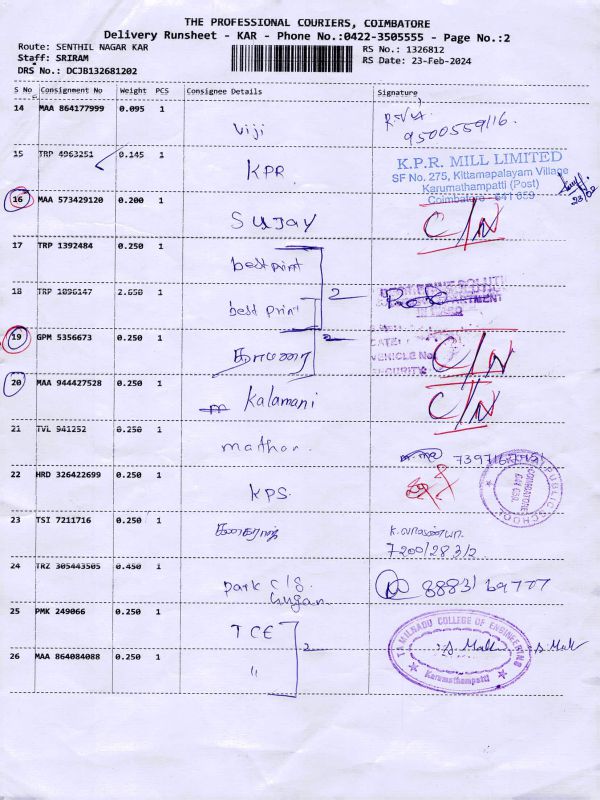 THE PROFESSIONAL COURIERS, COIMBATORE
Delivery Runsheet - KAR - Phone No.:0422-3505555 - Page No.:2
Route: SENTHIL NAGAR KAR
RS No.: 1326812
Staff: SRIRAM
RS Date: 23-Feb-2024
DRS No.: DCJB132681202
S No Consignment No Weight PCS Consignee Details Signature
14 MAA 864177999 0.095 1 Viji 9500559116.
15 TRP 4963251 0.145 1 KPR
K.P.R. MILL LIMITED
SF No. 275, Kittamapalayam Village
Karumathampatti (Post)
Coimbatore - 641 659
16 MAA 573429120 0.200 1 SUJAY C/N
17 TRP 1392484 0.250 1 best print
18 TRP 1096147 2.650 1 best print 2
19 GPM 5356673 0.250 1 தாமரை 2 C/N
VEHICLE No
SECURITY
20 MAA 944427528 0.250 1 m Kalamani C/N
21 TVL 941252 0.250 1
22 HRD 326422699 0.250 1 KPS
PUBLIC SCHOOL
COIMBATORE
23 TSI 7211716 0.250 1 7200128312
24 TRZ 305443505 0.450 1 park c/g. 8883169707
25 PMK 249066 0.250 1 TCE
26 MAA 864084088 0.250 1 " 2
TAMILNADU COLLEGE OF ENGINEERING
Karumathampatti